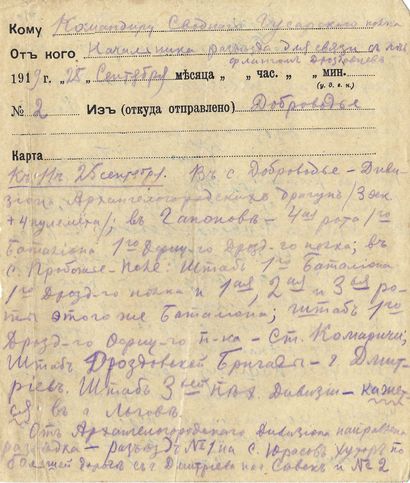 Кому Командиру Сводного Гусарского полка
Отъ кого Начальника разъезда для связи с лев
флангом Дроздовцев
1919 г. „25 Сентября мѣсяца „ час. „ „ мин.
(у. д. в. н.)
№ 2 Изъ (откуда отправлено) Доброводье
Карта
25 сентября. Въ с Доброводье – Диви-
зион Архангелогородских драгун /3 эск
+ 4 пулемета/; въ Гапонов – 4ая рота 1го
баталіона 1го Дрозд-го полка; въ
с. Пробожье-поле штабъ 1го баталіона
1го Дрозд-го полка и 1ая, 2ая и 3ья ро-
ты этого же баталіона; штабъ 1го
Дрозд-го п-ка – ст. Комаричи;
Штабъ Дроздовской Бригады – г Дмит-
риевъ. Штабъ 3ей пѣх дивизіи – кажет-
ся въ г Льговѣ.
Отъ Архангелогородского дивизіона направлена
разведка – разъездъ №1 на с. Юрасов Хутор по
большой дороге съ г Дмитриева на Севск и №2